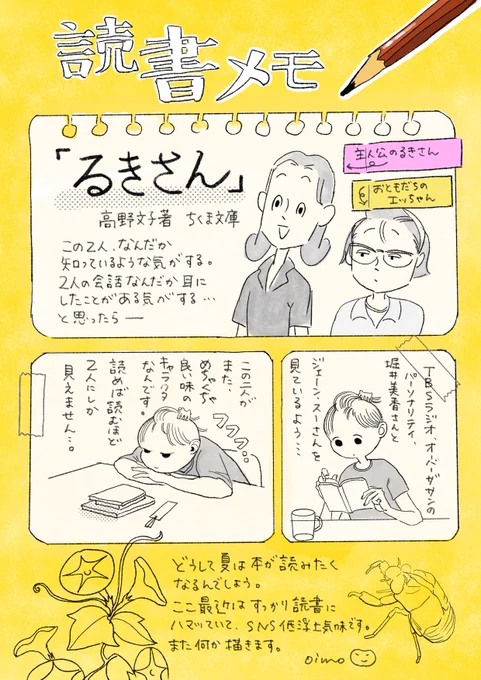 読書メモ
「るきさん」
高野文子著 ちくま文庫
主人公のるきさん
おともだちの
エッちゃん
この2人、なんだか
知っているような気がする。
2人の会話なんだか耳に
したことがある気がする…
と思ったら―
TBSラジオ、オーバーザサンの
パーソナリティ、
堀井美香さんと
ジェーン・スーさんを
見ているよう…
この二人が
また、
めちゃくちゃ
良い味の
キャラクタ
なんです。
読めば読むほど
2人にしか
見えません…。
フフフ…
どうして夏は本が読みたく
なるんでしょう。
ここ最近はすっかり読書に
ハマッていて、SNS低浮上気味です。
また何か描きます。
oimo